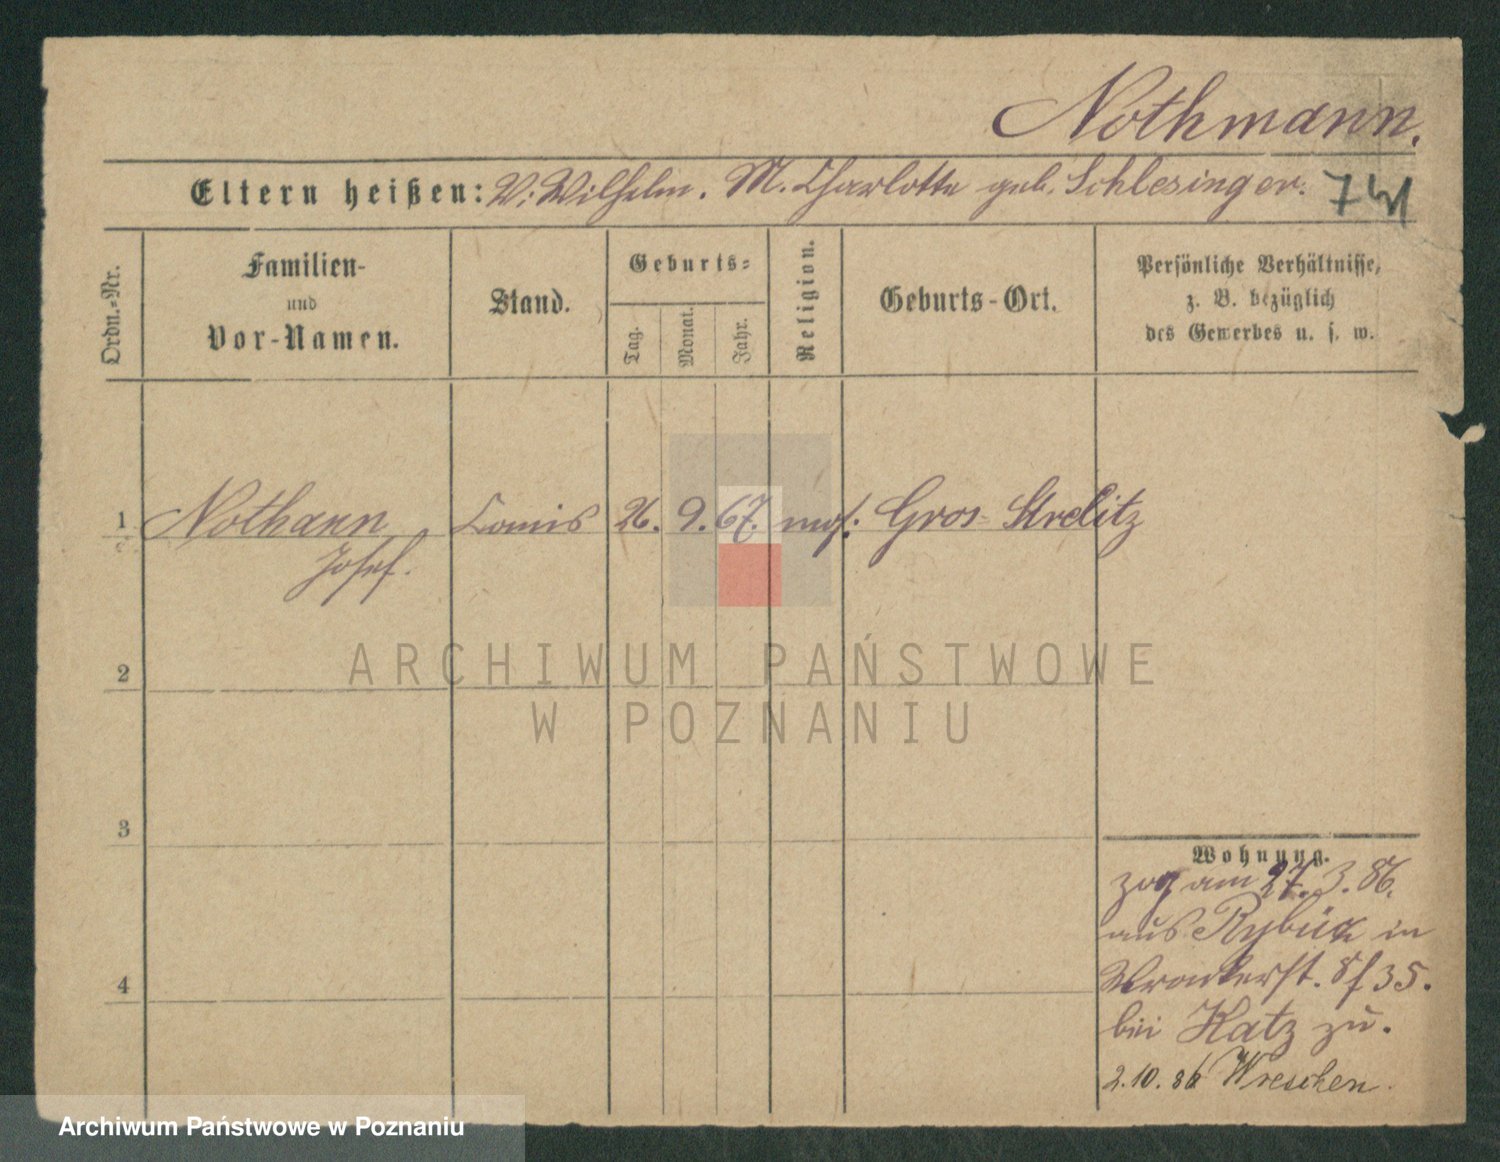 Nothmann.
Eltern heißen: V: Wilhelm. M. Charlotte geb. Schlesinger.
Ordn.-Nr.
Familien-
und
Vor-Namen.
Stand.
Geburts-
Tag.
Monat.
Jahr.
Religion.
Geburts-Ort.
Persönliche Verhältnisse,
z. B. bezüglich
des Gewerbes u. s. w.
1 Nothann Comis 26. 9. 67. mos. Gros-Strelitz
Josef.
2
ARCHIWUM PAŃSTWOWE
W POZNANIU
3
4
Wohnung.
zog am 27. 3. 86.
aus in
Wronkerst. 35.
bei Katz zu.
2.10.86 Wreschen.
Archiwum Państwowe w Poznaniu